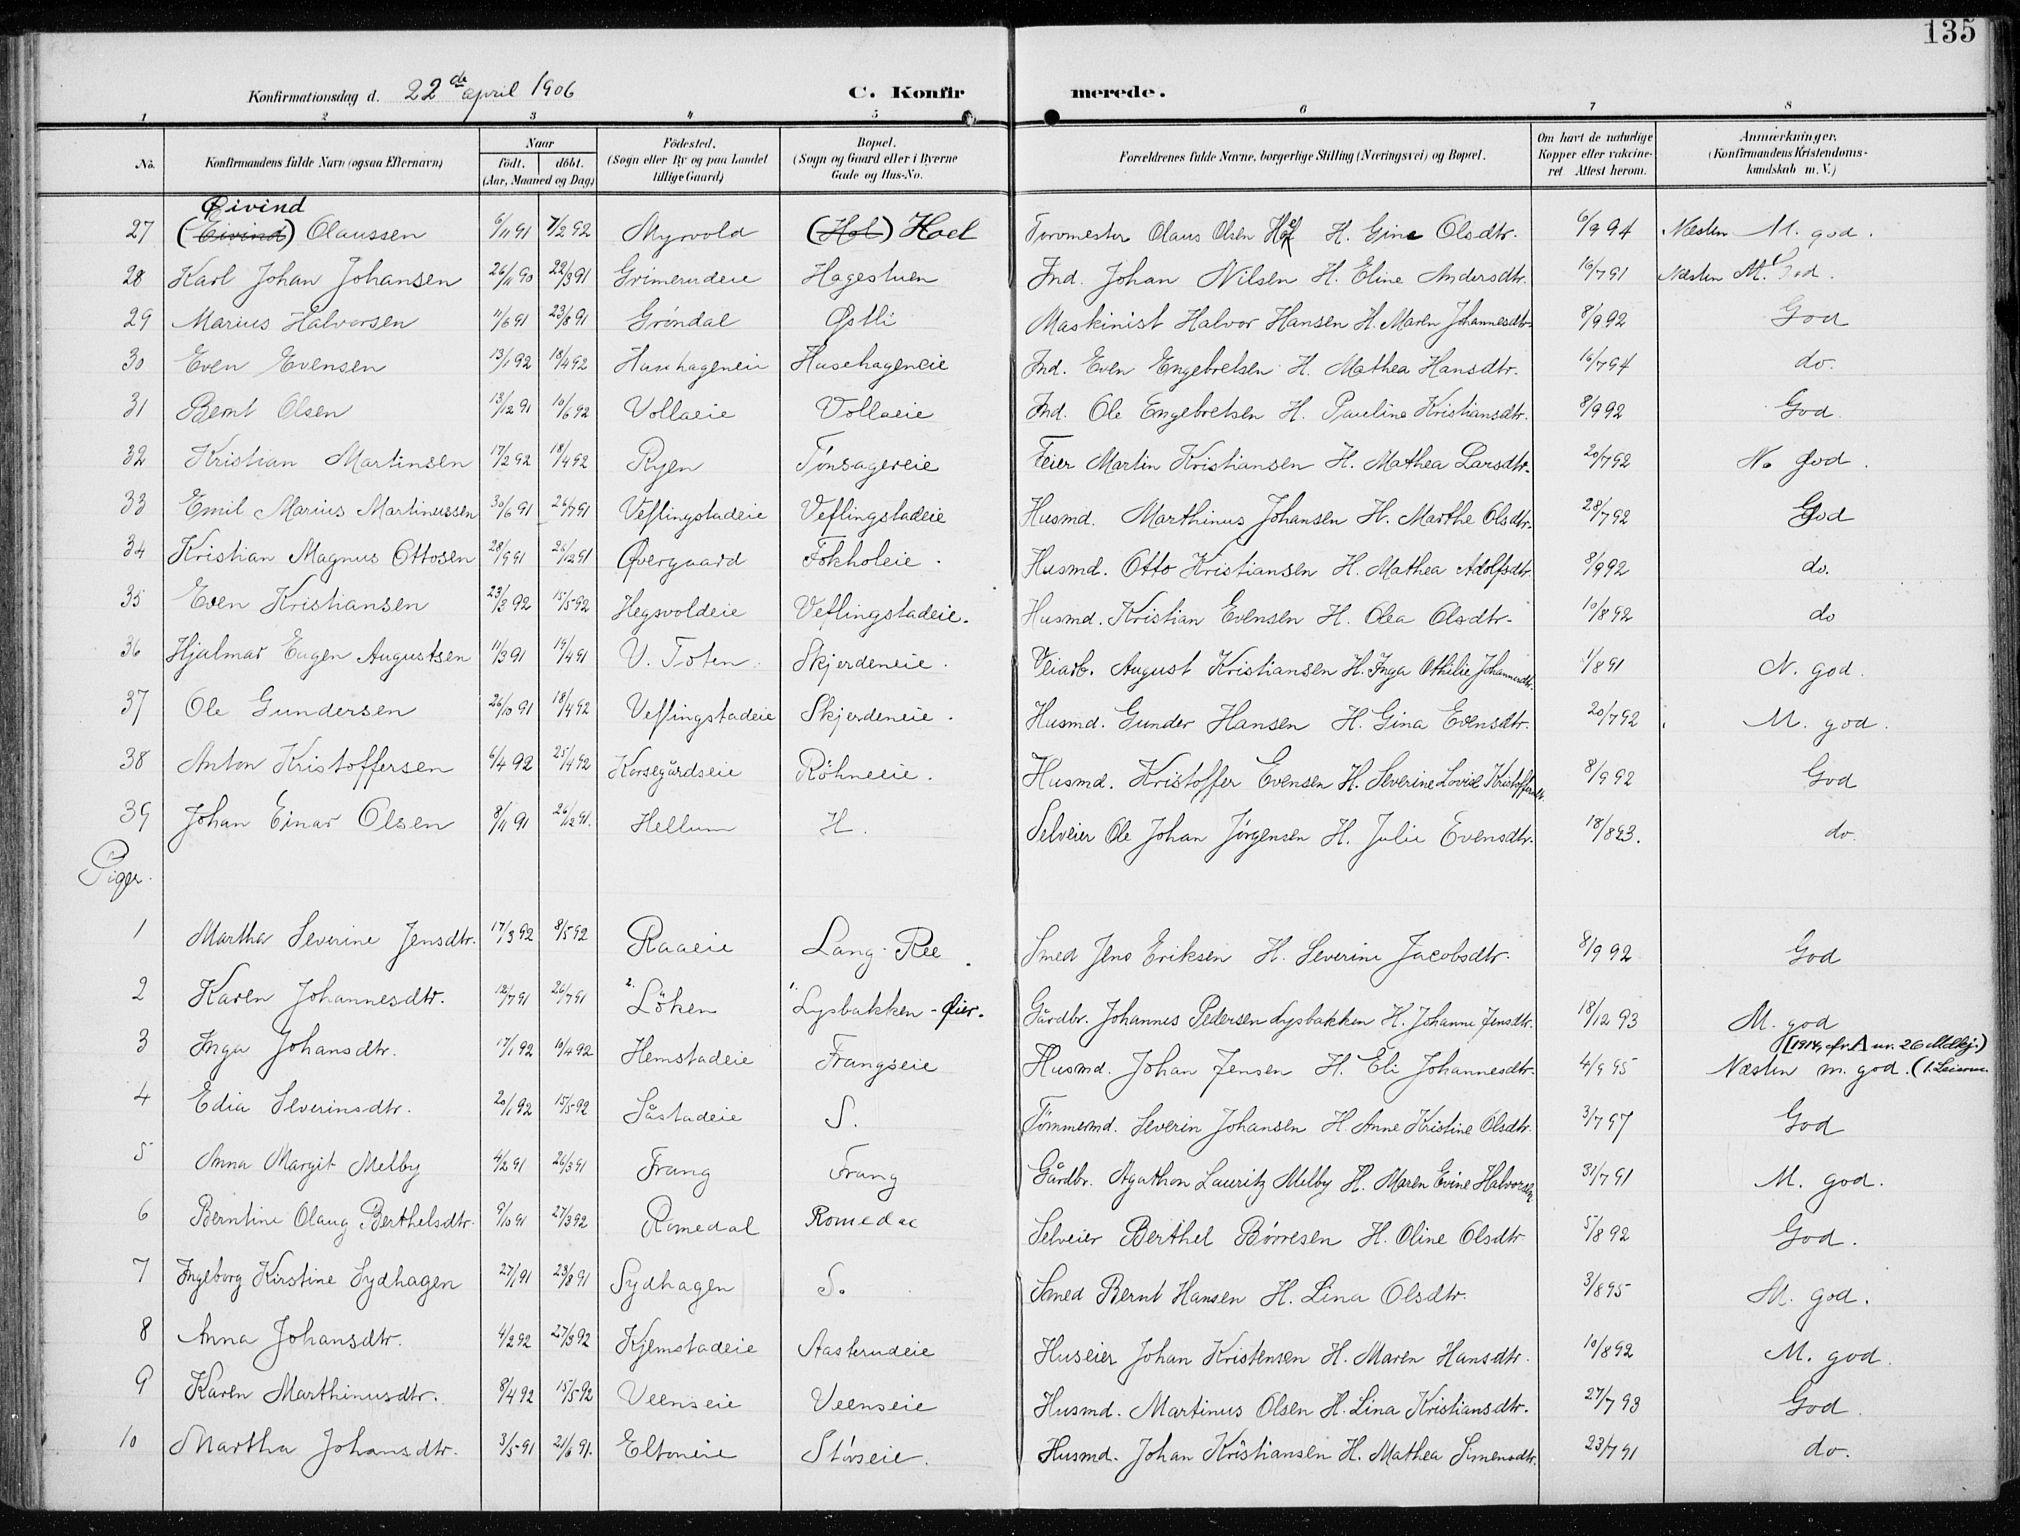 135
Konfirmationsdag d. 22de april 1906 C. Konfir merede.
1 2 3 4 5 6 7 8
No. Konfirmandens fulde Navn (ogsaa Efternavn) Naar født. døbt. (Aar, Maaned og Dag) Fødested. (Sogn eller By og paa Landet tillige Gaard) Bopæl. (Sogn og Gaard eller i Byerne Gade og Hus-No. Forældrenes fulde Navne, borgerlige Stilling (Næringsvei) og Bopæl. Om havt de naturlige Kopper eller vakcineret Attest herom. Anmærkninger. (Konfirmandens Kristendomskundskab m. V.)
Øivind
27 (Eivind) Olaussen 6/11 91 7/2 92 Myrvold (Hol) Hoel Torvmester Olaus Olsen H. Gine Olsdtr. 6/9 94 Næsten M. god.
28 Karl Johan Johansen 26/11 90 22/3 91 Grimerudeie Hagestuen Ind. Johan Nilsen H. Eline Andersdtr. 16/7 91 Næsten M. God.
29 Marius Halvorsen 11/6 91 23/8 91 Gröndal Østli Maskinist Halvor Hansen H. Maren Johannesdtr. 8/9 92 God
30 Even Evensen 13/1 92 18/4 92 Husehageneie Husehageneie Ind. Even Engebretsen H. Mathea Hansdtr. 16/7 94 do.
31 Bernt Olsen 13/12 91 10/6 92 Vollaeie Vollaeie Ind. Ole Engebretsen H. Pauline Kristiansdtr. 8/9 92 God.
32 Kristian Martinsen 17/2 92 18/4 92 Ryen Tønsagereie Feier Martin Kristiansen H. Mathea Larsdtr. 20/7 92 N. god.
33 Emil Marius Martinussen 30/6 91 26/7 91 Veflingstadeie Veflingstadeie Husmd. Marthinus Johansen H. Marthe Olsdtr. 28/7 92 God
34 Kristian Magnus Ottosen 28/9 91 26/12 91 Øvergaard Fokholeie. Husmd. Otto Kristiansen H. Mathea Adolfsdtr. 8/9 92 do.
35 Even Kristiansen 23/3 92 15/5 92 Hegsvoldeie Veflingstadeie. Husmd. Kristian Evensen H. Olea Olsdtr. 10/8 92 do
36 Hjalmar Eugen Augustsen 11/3 91 19/4 91 V. Toten. Skjerdeneie. Veiarb. August Kristiansen H. Inga Othilie Johannesdtr. 1/8 91 N. god.
37 Ole Gundersen 26/10 91 18/4 92 Veflingstadeie Skjerdeneie. Husmd. Gunder Hansen H. Gina Evensdtr. 20/7 92 M. god.
38 Anton Kristoffersen 6/4 92 25/4 92 Korsegårdseie Röhneeie. Husmd. Kristoffer Evensen H. Severine Lovise Kristoffersdtr. 8/9 92 God
39 Johan Einar Olsen 8/11 91 26/12 91. Hellum H. Selveier Ole Johan Jørgensen H. Julie Evensdtr. 18/8 93. do.
Piger.
1 Martha Severine Jensdtr. 17/3 92 8/5 92 Raaeie Lang-Ree. Smed Jens Eriksen H. Severine Jacobsdtr. 8/9 92 God
2 Karen Johannesdtr. 12/7 91 26/7 91 2. Löken 1. Lysbakken-øier. Gårdbr. Johannes Pedersen Lysbakken H. Johanne Jensdtr. 18/12 93 M. god
3 Inga Johansdtr. 17/1 92 10/4 92 Hemstadeie Frangseie Husmd. Johan Jensen H. Eli Johannesdtr. 4/9 95 Næsten m. god.
4 Edia Severinsdtr. 20/1 92 15/5 92 Såstadeie S. Tömmermd. Severin Johansen H. Anne Kristine Olsdtr. 3/7 97 God
5 Anna Margit Melby 4/2 91 26/3 91 Frang Frang Gårdbr. Agathon Lauritz Melby H. Maren Evine Halvorsen 31/7 91 M. god.
6 Berntine Olaug Berthelsdtr. 9/10 91 27/3 92 Romedal Romedal Selveier Berthel Børresen H. Oline Olsdtr 5/8 92 God.
7 Ingeborg Kirstine Sydhagen 27/1 91 23/8 91 Sydhagen S. Smed Bernt Hansen H. Lina Olsdtr. 3/8 95 M. god.
8 Anna Johansdtr. 4/2 92 27/3 92 Kjemstadeie Aasterudeie Huseier Johan Kristensen H. Maren Hansdtr. 10/8 92 M. god.
9 Karen Marthinusdtr. 8/4 92 15/5 92 Veenseie Veenseie Husmd. Martinus Olsen H. Lina Kristiansdtr. 27/7 93 God.
10 Martha Johansdtr. 3/5 91 21/6 91. Eltoneie Størseie. Husmd. Johan Kristiansen H. Mathea Simensdtr. 23/7 91 do.